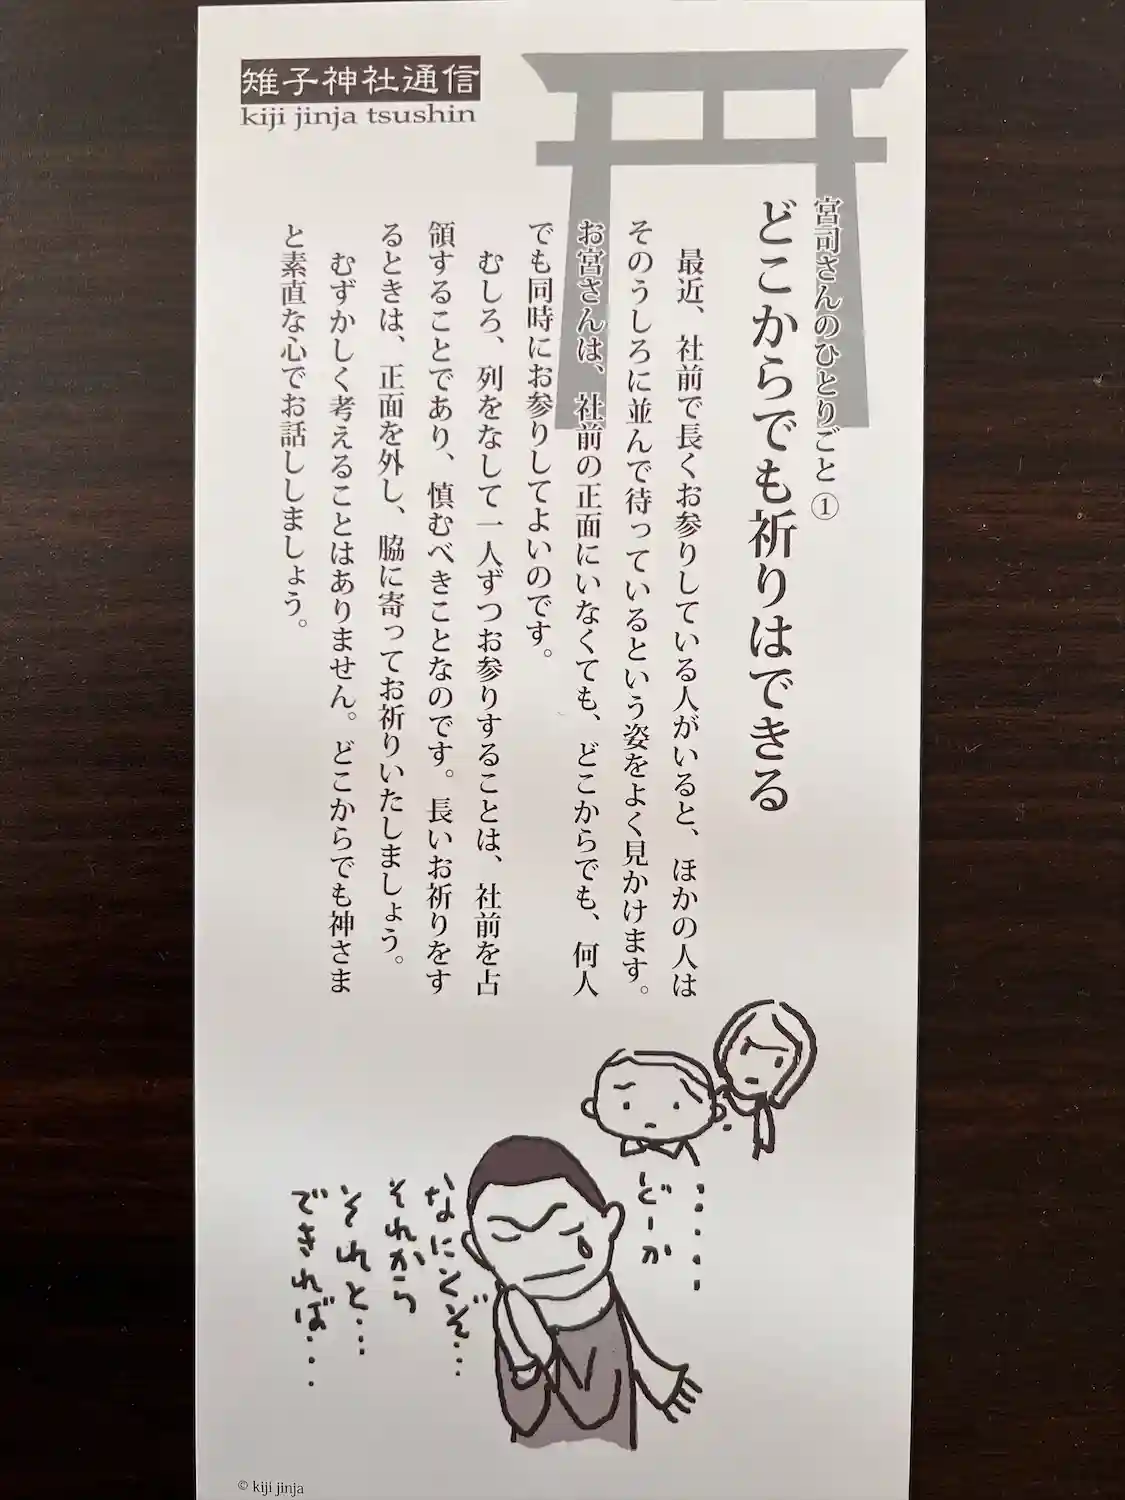 雉子神社通信
kiji jinja tsushin
宮司さんのひとりごと①
どこからでも祈りはできる
最近、社前で長くお参りしている人がいると、ほかの人は
そのうしろに並んで待っているという姿をよく見かけます。
お宮さんは、社前の正面にいなくても、どこからでも、何人
でも同時にお参りしてよいのです。
むしろ、列をなして一人ずつお参りすることは、社前を占
領することであり、慎むべきことなのです。長いお祈りをす
るときは、正面を外し、脇に寄ってお祈りいたしましょう。
むずかしく考えることはありません。どこからでも神さま
と素直な心でお話ししましょう。
・・・・・
どーか
なにとぞ・・・
それから
それと・・・
できれば・・・
© kiji jinja